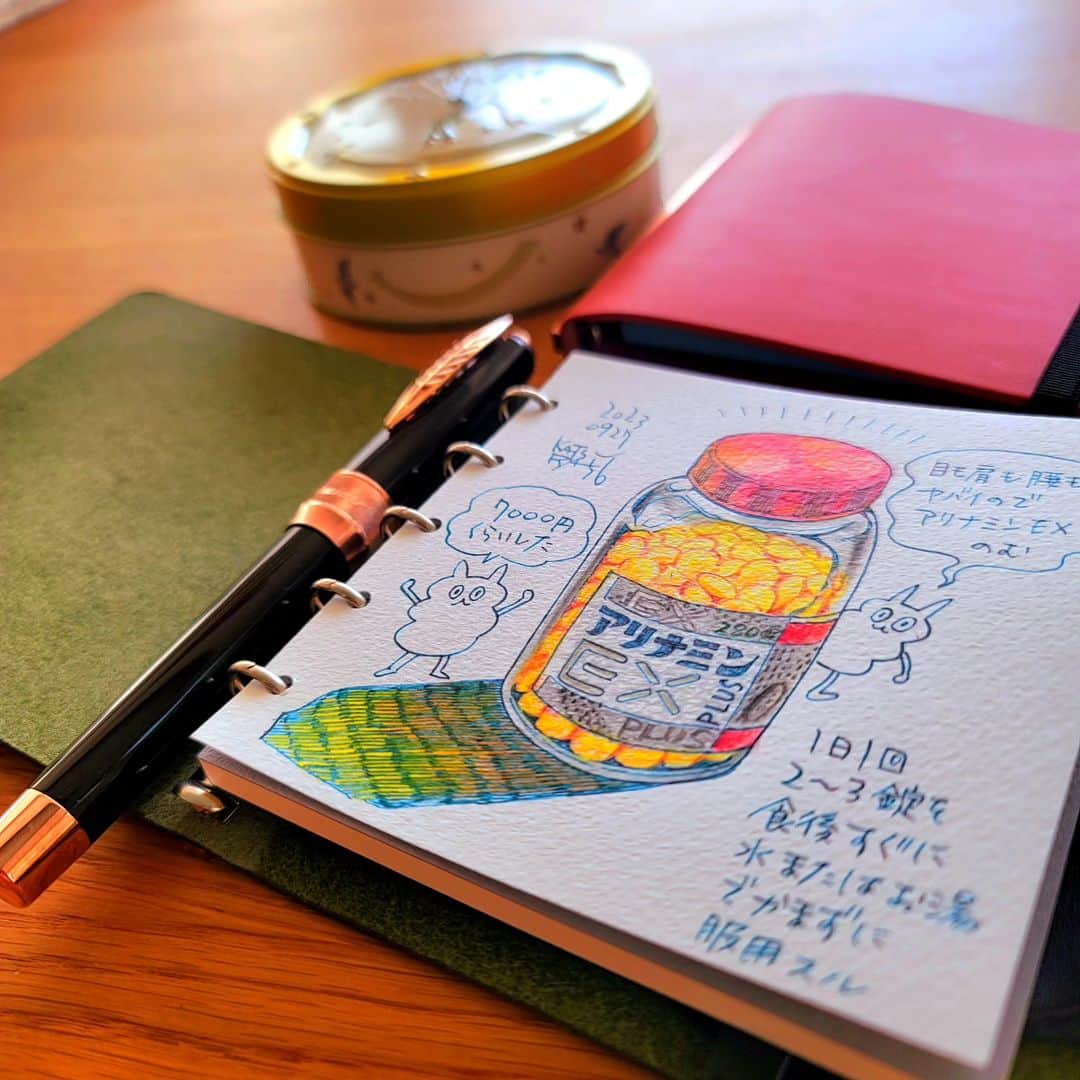 2023
0927
7000円
くらいした
目も肩も腰も
ヤバイので
アリナミンEX
のむ
EX
アリナミン
EX
PLUS
PLUS
1日1回
2〜3錠を
食後すぐに
水またはお湯
でかまずに
服用スル